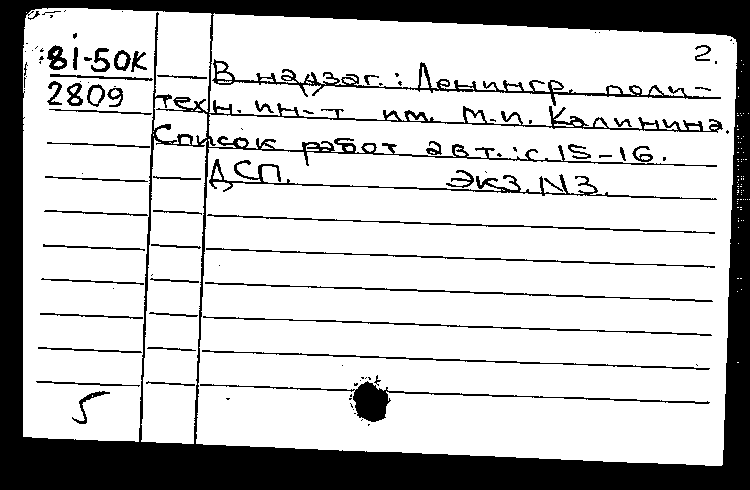 2.
8i-50К
2809
В надзаг.: Ленингр. поли-
техн. ин-т им. М.И. Калинина.
Список работ авт.: с. 15-16.
ДСП. Экз. N3.
5